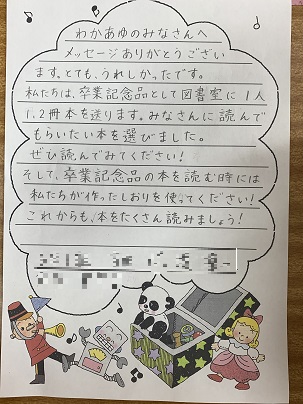 わかあゆのみなさんへ
メッセージありがとうござい
ます。とても、うれしかったです。
私たちは、卒業記念品として図書室に1人
1、2冊本を送ります。みなさんに読んで
もらいたい本を選びました。
ぜひ読んでみてください!
そして、卒業記念品の本を読む時には
私たちが作ったしおりを使ってください!
これからも、本をたくさん読みましょう!